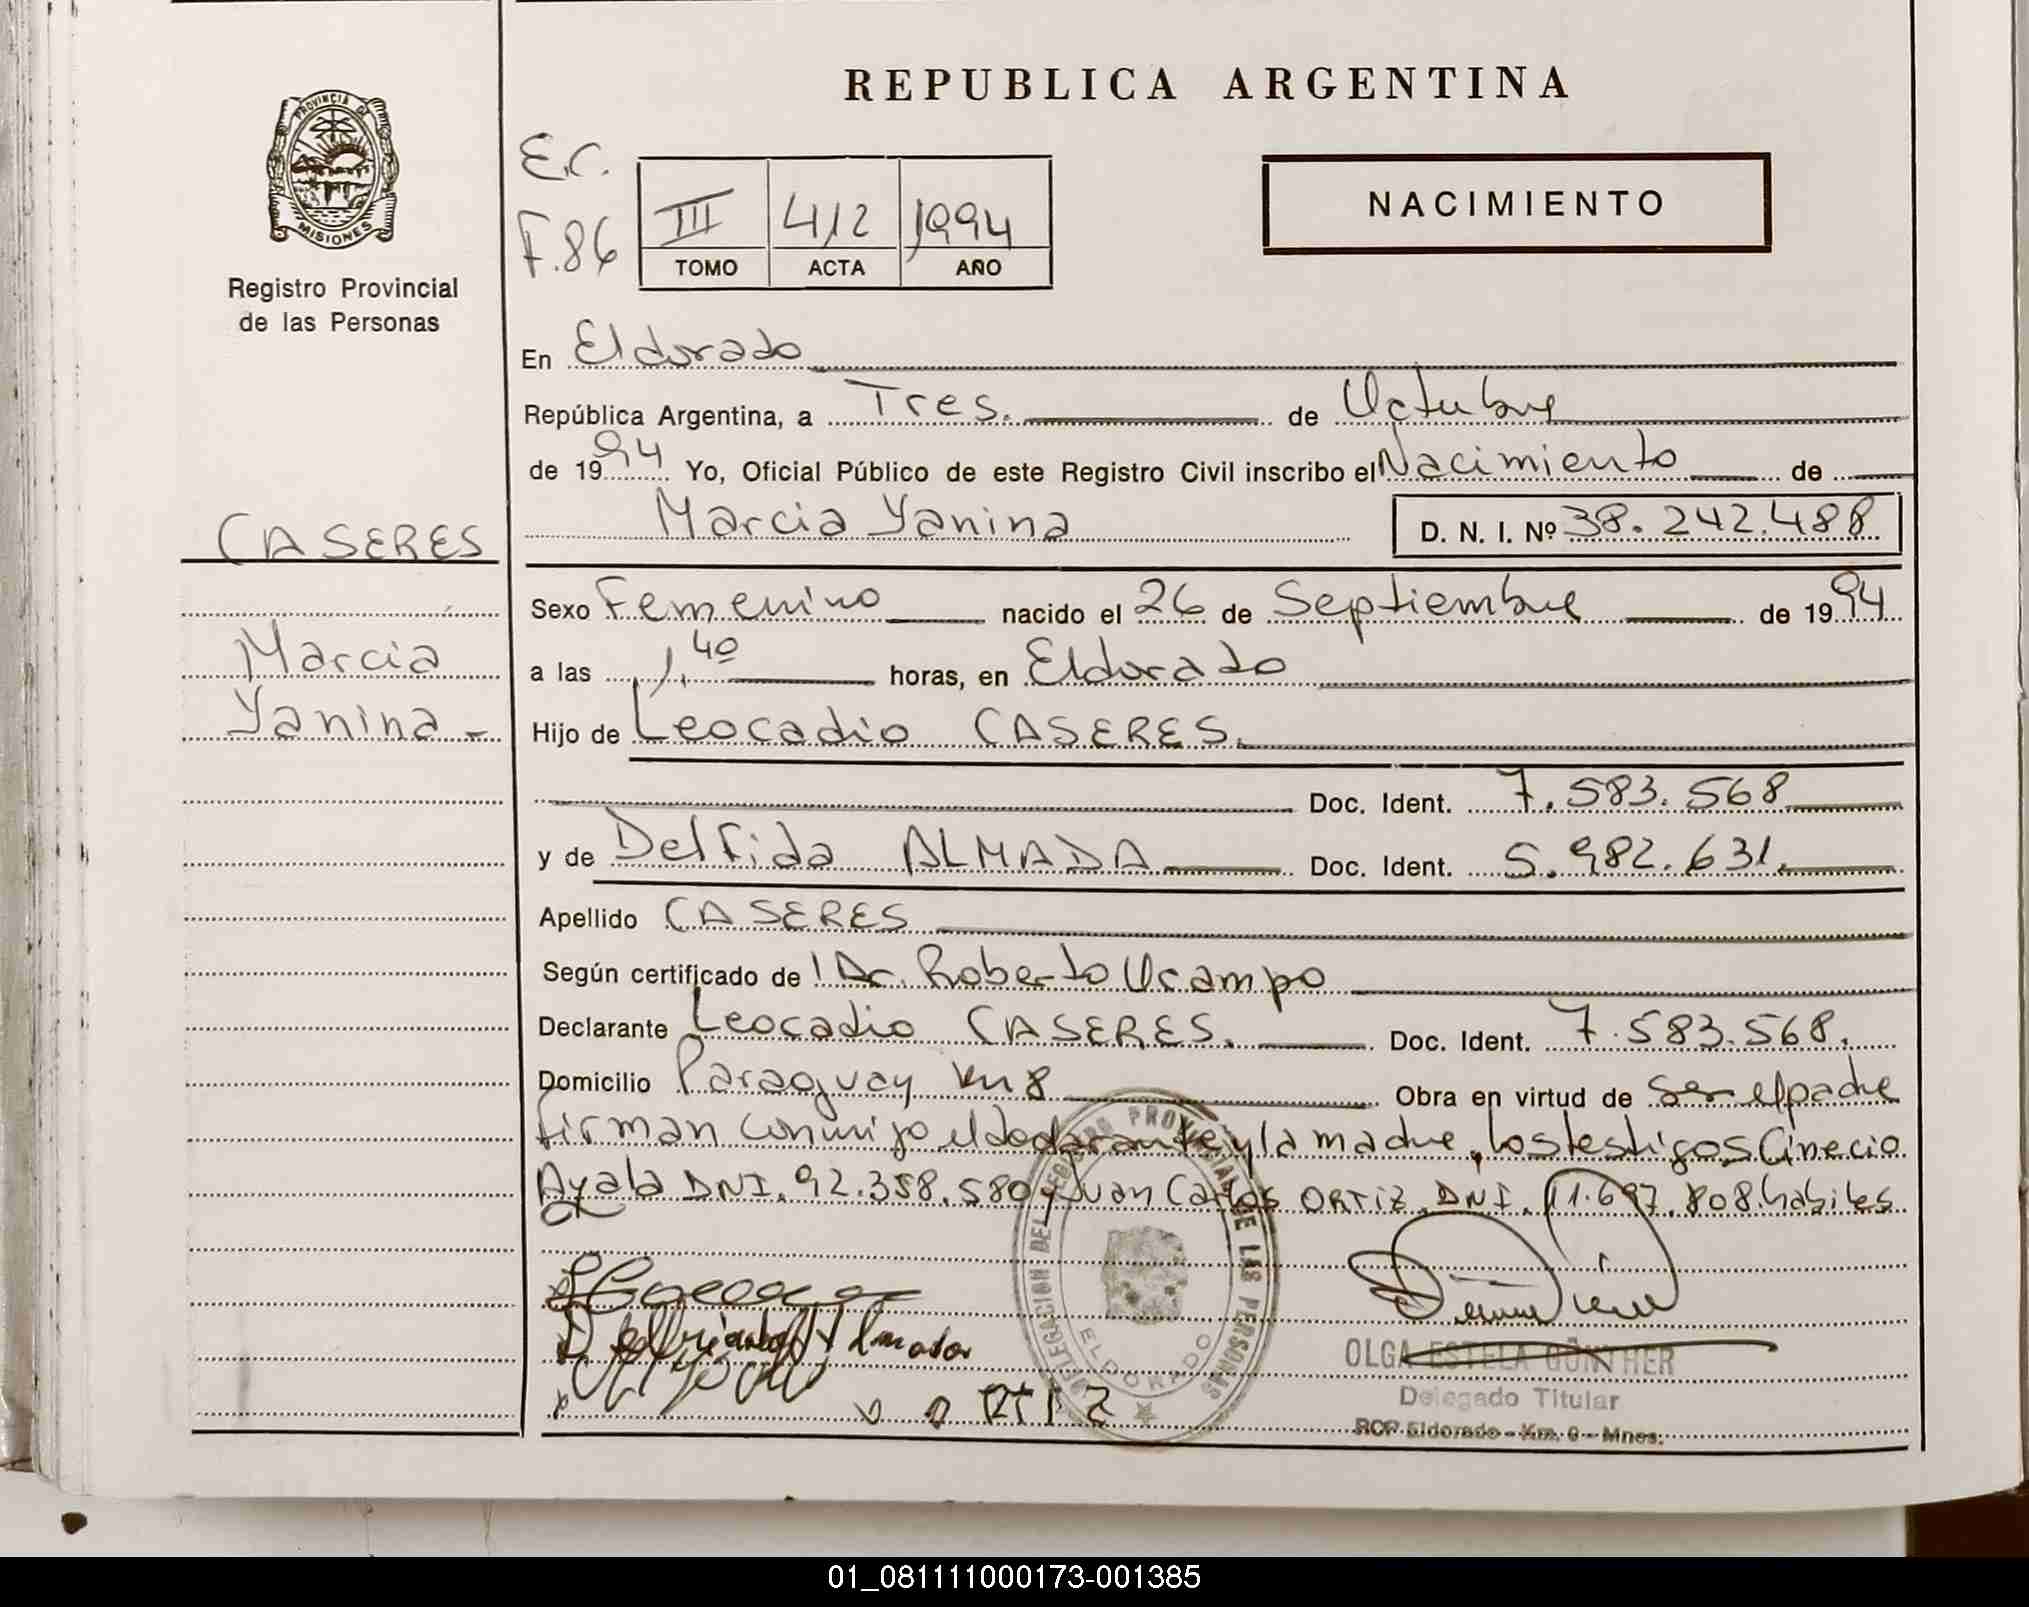 REPUBLICA ARGENTINA
PROVINCIA DE
MISIONES
Registro Provincial
de las Personas
E.C.
F.86
III 412 1994
TOMO ACTA AÑO
NACIMIENTO
CASERES
Marcia
Yanina -
En Eldorado
República Argentina, a Tres. de Octubre
de 1994 Yo, Oficial Público de este Registro Civil inscribo el Nacimiento de
Marcia Yanina D. N. I. Nº 38.242.488
Sexo Femenino nacido el 26 de Septiembre de 1994
a las 1,40 horas, en Eldorado
Hijo de Leocadio CASERES.
Doc. Ident. 7.583.568
y de Delfida ALMADA Doc. Ident. 5.982.631.
Apellido CASERES
Según certificado de Dr. Roberto Ocampo
Declarante Leocadio CASERES. Doc. Ident. 7.583.568.
Domicilio Paraguay km 8 Obra en virtud de ser el padre
firman conmigo el declarante y la madre, los testigos Cinecio
Ayala DNI. 92.358.580 y Juan Carlos ORTIZ DNI. 11.697.808. habiles
DELEGACION DEL REGISTRO PROVINCIAL DE LAS PERSONAS
ELDORADO
Almada
ORTIZ
OLGA ESTELA GÜNTHER
Delegado Titular
RCP Eldorado - Km. 9 - Mnes.
01_081111000173-001385